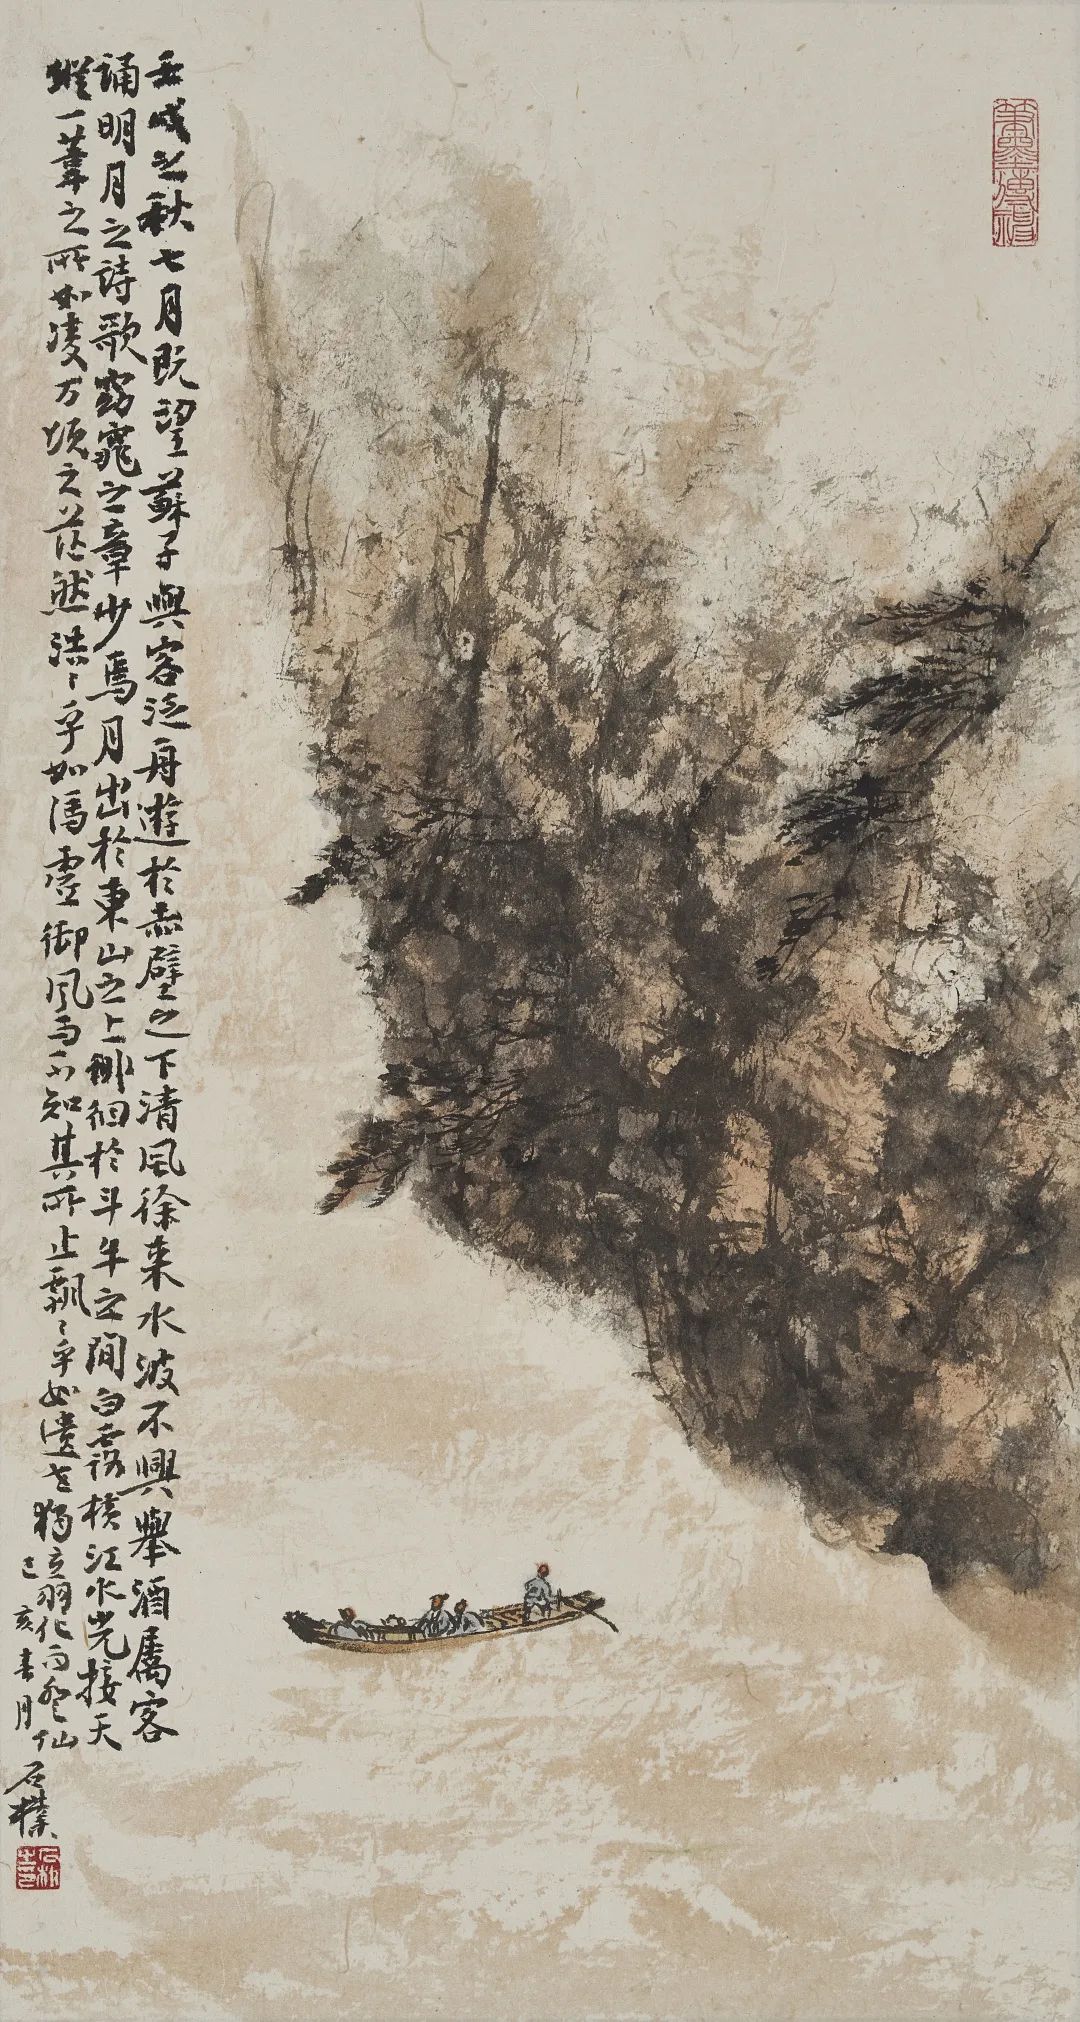 筆墨傳神
壬戌之秋七月既望蘇子與客泛舟遊於赤壁之下清風徐来水波不興舉酒屬客
誦明月之詩歌窈窕之章少焉月出於東山之上徘徊於斗牛之間白露橫江水光接天
縱一葦之所如凌万頃之茫然浩〻乎如馮虛御風而不知其所止飄〻乎如遺世獨立羽化而登仙
己亥春月 石樸